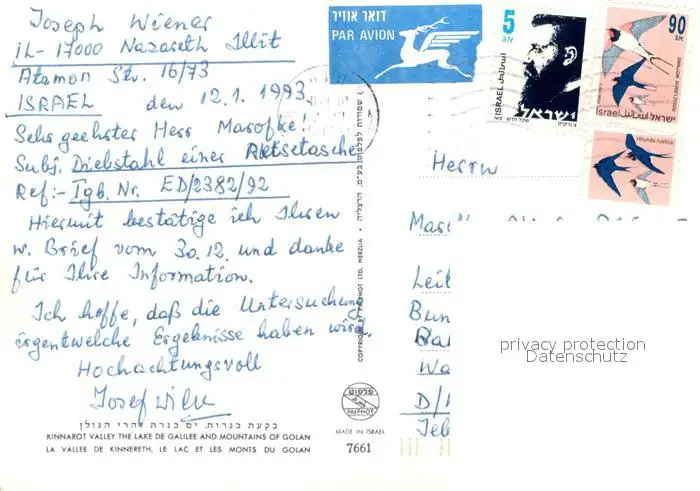 Joseph Wiener
iL- 17000 Nazareth Illit
Atamon Str. 16/73
ISRAEL den 12.1.1993
Sehr geehrter Herr Marofke!
Subj. Diebstahl einer Reisetasche
Ref:- Tgb. Nr. ED/2382/92
Hiermit bestätige ich Ihren
w. Brief vom 30.12. und danke
für Ihre Information.
Ich hoffe, daß die Untersuchung
irgentwelche Ergebnisse haben wird.
Hochachtungsvoll
Josef
בקעת כנרות, ים כנרת והרי הגולן
KINNAROT VALLEY THE LAKE DE GALILEE AND MOUNTAINS OF GOLAN
LA VALLEE DE KINNERETH, LE LAC ET LES MONTS DU GOLAN
COPYRIGHT BY PALPHOT LTD. HERZLIA • כל הזכויות שמורות לפלפוט בע"מ. הרצליה
פלפוט
PALPHOT
MADE IN ISRAEL
7661
דואר אוויר
PAR AVION
5
אג
ISRAEL
ישראל
90
אג
Israel ישראל
Hirundo rustica
Herrn
Leit
Bun
Wa
D/
Tel
privacy protection
Datenschutz